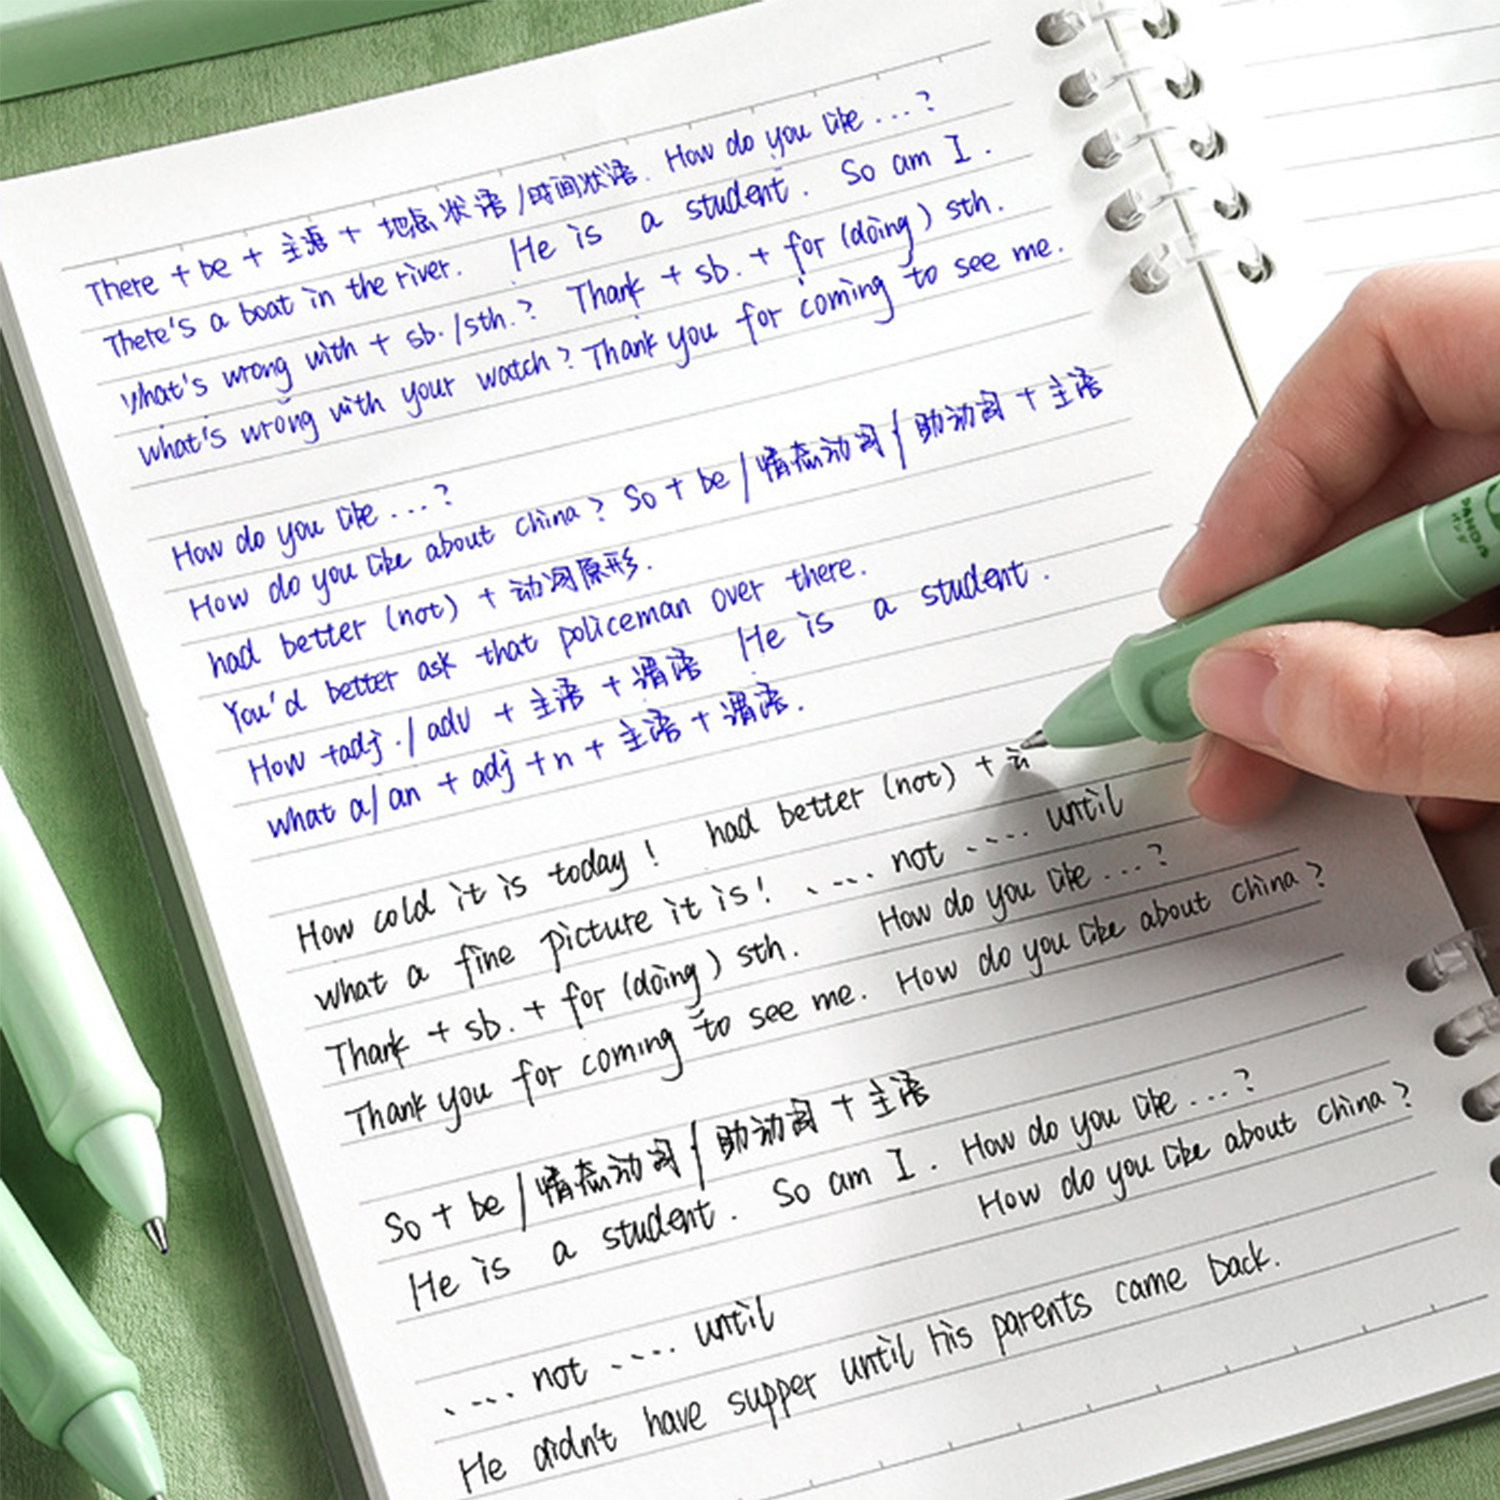 There + be + 主语 + 地点状语/时间状语. How do you like ...?
There's a boat in the river. He is a student. So am I.
what's wrong with + sb./sth.? Thank + sb. + for (doing) sth.
what's wrong with your watch? Thank you for coming to see me.
How do you like ...?
How do you like about china? So + be / 情态动词 / 助动词 + 主语
had better (not) + 动词原形.
You'd better ask that policeman over there.
How +adj./adv + 主语 + 谓语 He is a student.
what a/an + adj +n + 主语 + 谓语.
How cold it is today! had better (not) +
what a fine picture it is! .... not .... until
Thank + sb. + for (doing) sth. How do you like ...?
Thank you for coming to see me. How do you like about china?
So + be / 情态动词 / 助动词 + 主语
He is a student. So am I. How do you like ...?
How do you like about china?
.... not .... until
He didn't have supper until his parents came back.
PANDA